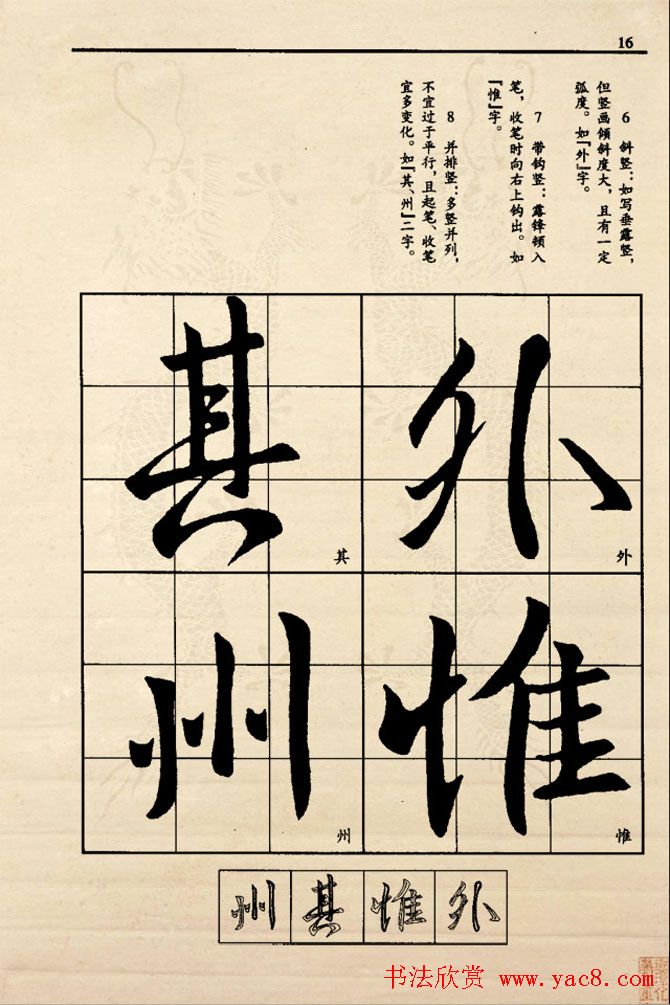 16
6　斜竖：如写垂露竖，
但竖画倾斜度大，且有一定
弧度。如『外』字。
7　带钩竖：露锋顿入
笔，收笔时向右上钩出。如
『惟』字。
8　并排竖：多竖并列，
不宜过于平行，且起笔、收笔
宜多变化。如『其、州』二字。
外
外
惟
惟
其
其
州
州
外
惟
其
州
书法欣赏 www.yac8.com